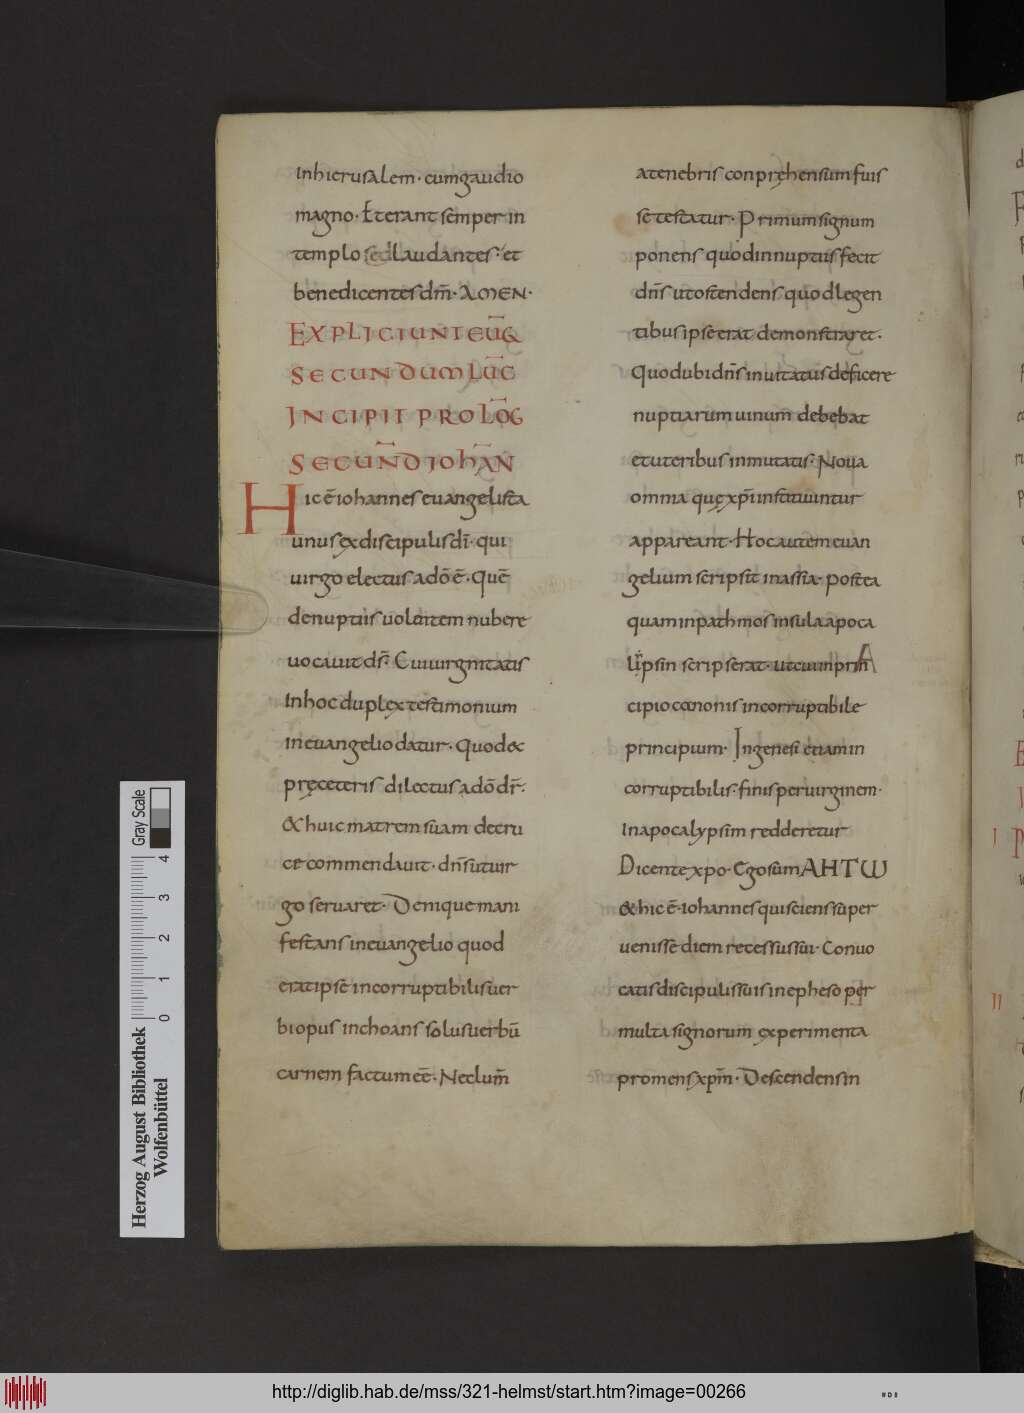 Inhierusalem· cumgaudio
magno· Eterant semper in
templo sed laudantes· et
benedicentes dm̄· AMEN·
EXPLICIUNT EUḠ
SECUNDUM LUC̄
INCIPIT PROLOḠ
SECUN̄D IOHAN̄
Hic ē iohannes euangelista
unus ex discipulis dī· qui
uirgo electus adō ē· Quē
denuptiis uolentem nubere
uocauit ds̄· Cui uirginitatis
Inhoc duplex testimonium
In euangelio datur· Quodec
pręceteris dilectus adō dr̄·
& huic matrem suam decru
ce commendauit· dn̄s utuir
go seruaret· Denique mani
festans ineuangelio quod
eratipse incorruptibilis uer
bi opus inchoans solus uerbū
carnem factum eē· Neclum̄
atenebris conprehensum fuis
se testatur· Primum signum
ponens quodinnuptiis fecit
dn̄s utostendens quodlegen
tibus ipse erat demonstraret·
Quodubi dn̄s inuitatus deficere
nuptiarum uinum debebat
etueteribus inmutatis· Noua
omnia quę xp̄i instituuntur
appareant· Hocautem euan
gelium scripsit inassia· postea
quaminpathmos insula apoca
lipsin scripserat· utcuiinprin
A
cipio canonis incorruptibile
principium· Ingenesi etiamin
corruptibilis· finis peruirginem·
Inapocalypsim redderetur
Dicente xpo· Ego sum A H T ω
& hic ē· iohannes quisciens super
uenisse diem recessus sui· Conuo
catis discipulis suis inepheso per
multa signorum experimenta
promens xpm̄· Descendens in
Herzog August Bibliothek
Wolfenbüttel
Gray Scale
0 1 2 3 4
http://diglib.hab.de/mss/321-helmst/start.htm?image=00266